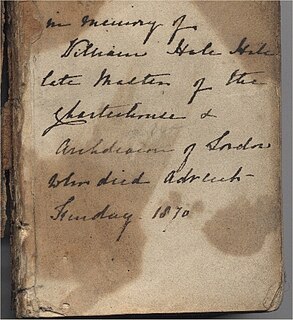 in memory of
William Hale Hale
late Master of the
Charterhouse &
Archdeacon of London
who died Advent
Sunday 1870